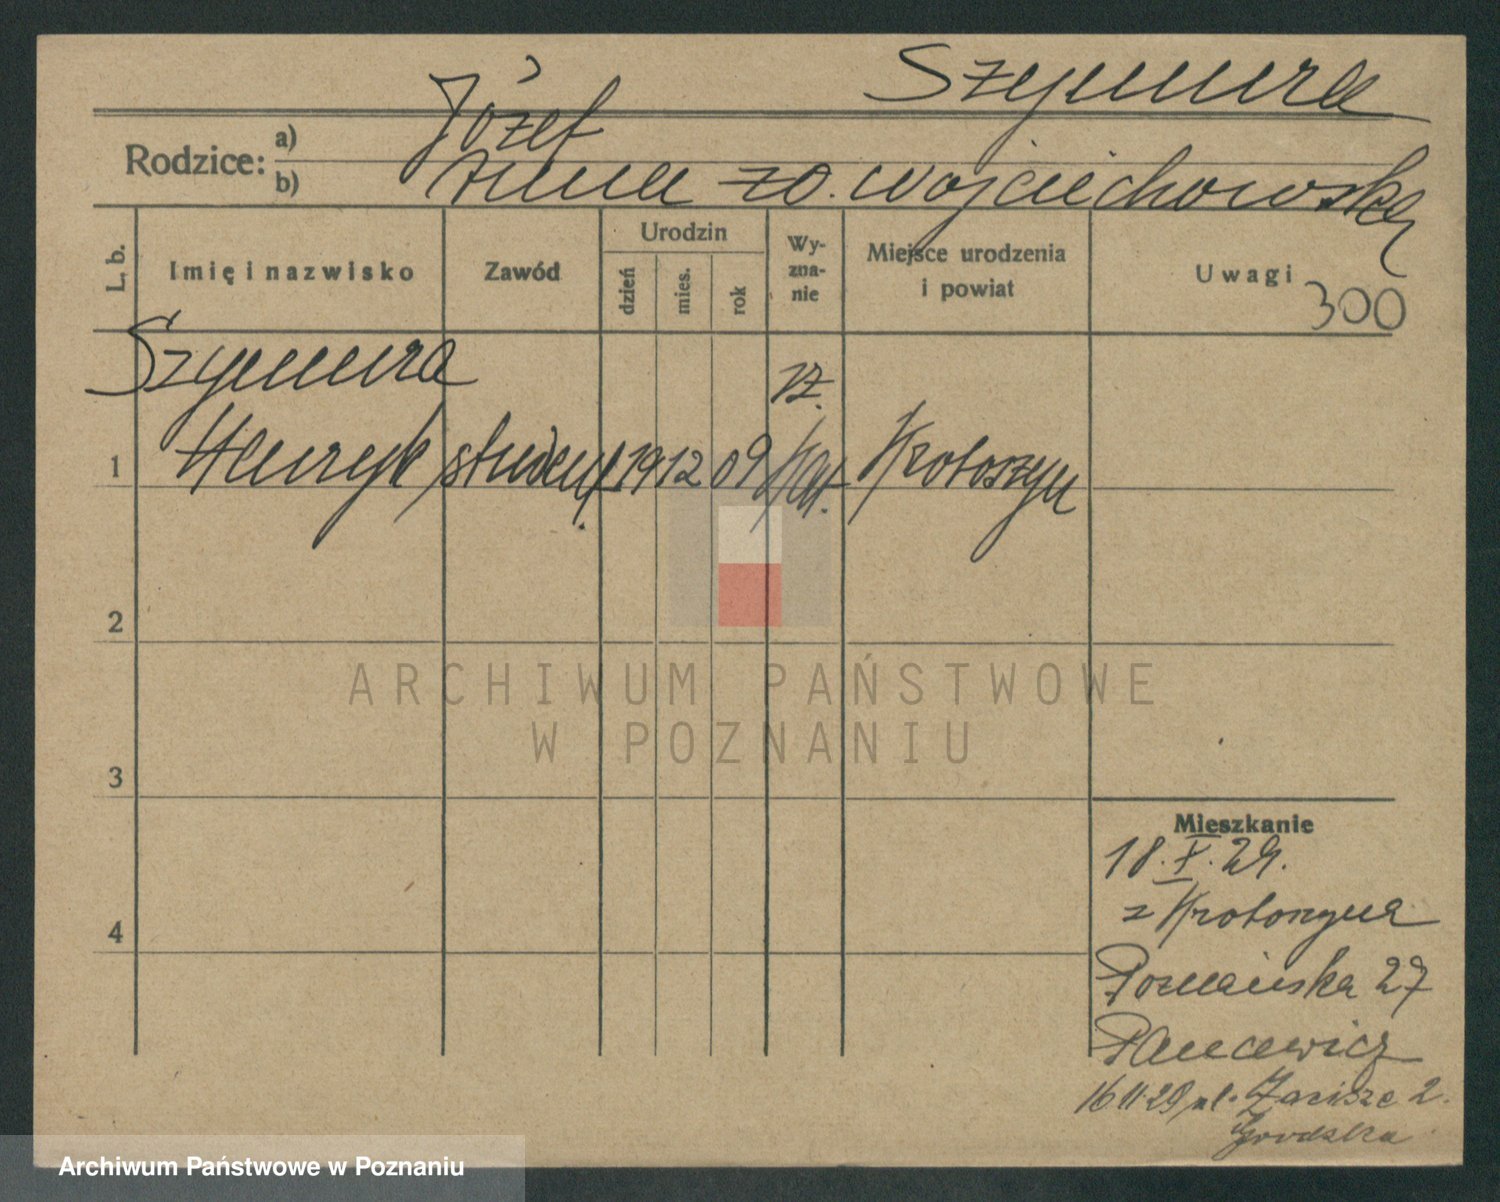 Szymura
Rodzice: a) Józef
b) Anna zd. Wojciechowska
L. b.
Imię i nazwisko
Zawód
Urodzin
dzień
mies.
rok
Wy-
zna-
nie
Miejsce urodzenia
i powiat
Uwagi
300
Szymura
rz.
1 Henryk student 19 12 09 kat. Krotoszyn
2
ARCHIWUM PAŃSTWOWE
W POZNANIU
3
Mieszkanie
18.X.29.
z Krotoszyna
4
Poznańska 27
16 11 29 pl. Zacisze 2.
Grodzka
Archiwum Państwowe w Poznaniu